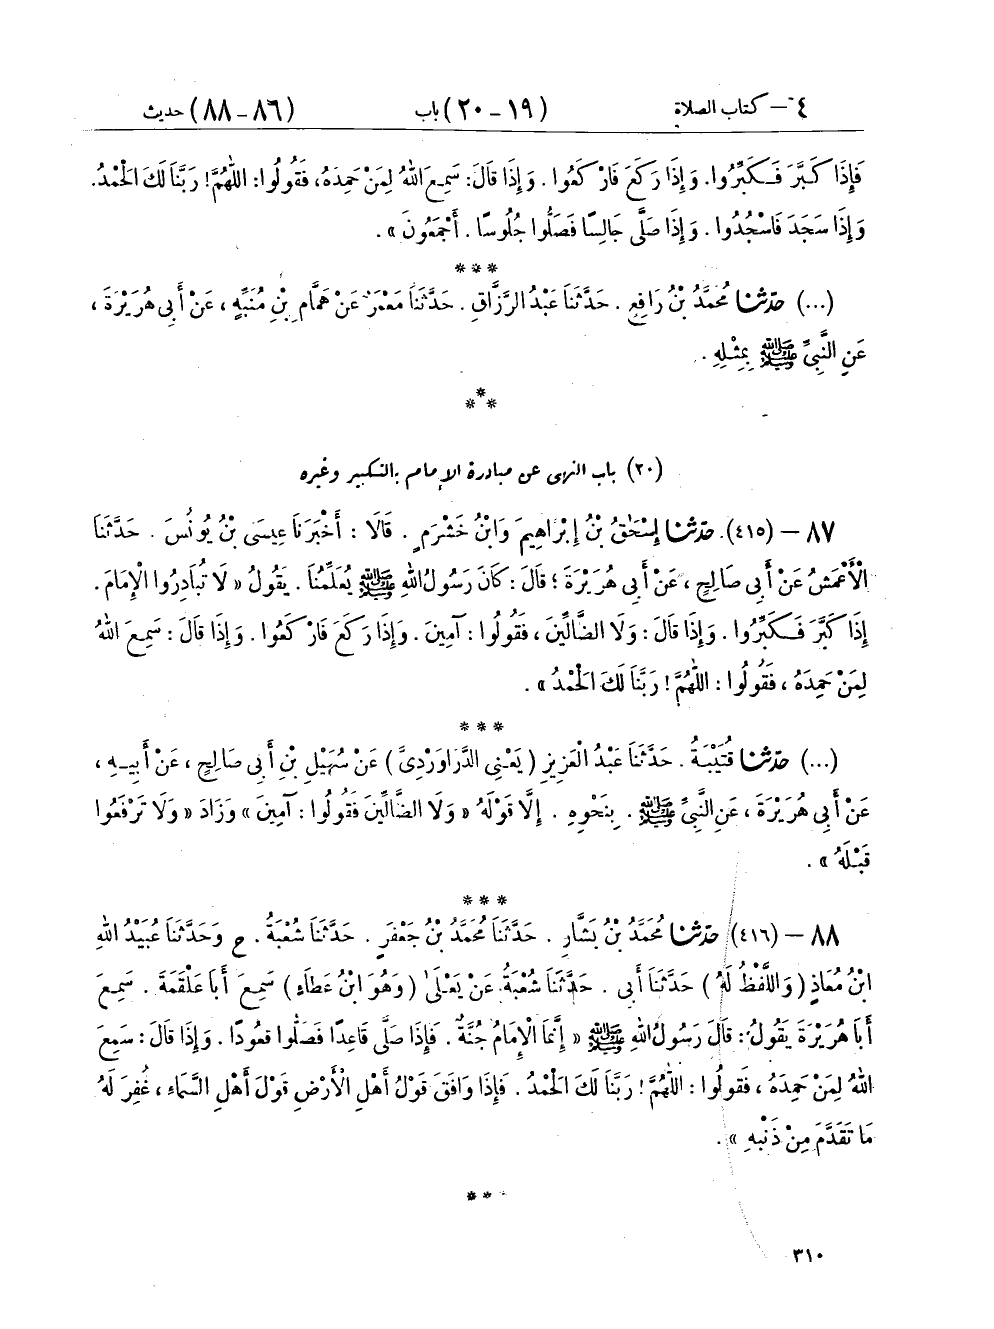 ٤ – كتاب الصلاة (١٩ – ٢٠) باب (٨٦ – ٨٨) حديث
فَإِذَا كَبَّرَ فَكَبِّرُوا. وَإِذَا رَكَعَ فَارْكَعُوا. وَإِذَا قَالَ: سَمِعَ اللهُ لِمَنْ حَمِدَهُ، فَقُولُوا: اللّٰهُمَّ! رَبَّنَا لَكَ الْحَمْدُ.
وَإِذَا سَجَدَ فَاسْجُدُوا. وَإِذَا صَلَّى جَالِسًا فَصَلُّوا جُلُوسًا. أَجْمَعُونَ».
***
(...) حدّثنا مُحَمَّدُ بْنُ رَافِعٍ. حَدَّثَنَا عَبْدُ الرَّزَّاقِ. حَدَّثَنَا مَعْمَرٌ عَنْ هَمَّامِ بْنِ مُنَبِّهٍ، عَنْ أَبِي هُرَيْرَةَ،
عَنِ النَّبِيِّ ﷺ بِمِثْلِهِ.
***
(٢٠) باب النهى عن مبادرة الإمام بالتكبير وغيره
٨٧ – (٤١٥) حدّثنا إِسْحٰقُ بْنُ إِبْرَاهِيمَ وَابْنُ خَشْرَمٍ. قَالَا: أَخْبَرَنَا عِيسَى بْنُ يُونُسَ. حَدَّثَنَا
الْأَعْمَشُ عَنْ أَبِي صَالِحٍ، عَنْ أَبِي هُرَيْرَةَ؛ قَالَ: كَانَ رَسُولُ اللهِ ﷺ يُعَلِّمُنَا. يَقُولُ «لَا تُبَادِرُوا الْإِمَامَ.
إِذَا كَبَّرَ فَكَبِّرُوا. وَإِذَا قَالَ: وَلَا الضَّالِّينَ، فَقُولُوا: آمِينَ. وَإِذَا رَكَعَ فَارْكَعُوا. وَإِذَا قَالَ: سَمِعَ اللهُ
لِمَنْ حَمِدَهُ، فَقُولُوا: اللّٰهُمَّ! رَبَّنَا لَكَ الْحَمْدُ».
***
(...) حدّثنا قُتَيْبَةُ. حَدَّثَنَا عَبْدُ الْعَزِيزِ (يَعْنِي الدَّرَاوَرْدِيَّ) عَنْ سُهَيْلِ بْنِ أَبِي صَالِحٍ، عَنْ أَبِيهِ،
عَنْ أَبِي هُرَيْرَةَ، عَنِ النَّبِيِّ ﷺ. بِنَحْوِهِ. إِلَّا قَوْلَهُ «وَلَا الضَّالِّينَ فَقُولُوا: آمِينَ» وَزَادَ «وَلَا تَرْفَعُوا
قَبْلَهُ».
***
٨٨ – (٤١٦) حدّثنا مُحَمَّدُ بْنُ بَشَّارٍ. حَدَّثَنَا مُحَمَّدُ بْنُ جَعْفَرٍ. حَدَّثَنَا شُعْبَةُ. ح وَحَدَّثَنَا عُبَيْدُ اللهِ
ابْنُ مُعَاذٍ (وَاللَّفْظُ لَهُ) حَدَّثَنَا أَبِي. حَدَّثَنَا شُعْبَةُ عَنْ يَعْلَىٰ (وَهُوَ ابْنُ عَطَاءٍ) سَمِعَ أَبَا عَلْقَمَةَ. سَمِعَ
أَبَا هُرَيْرَةَ يَقُولُ: قَالَ رَسُولُ اللهِ ﷺ «إِنَّمَا الْإِمَامُ جُنَّةٌ. فَإِذَا صَلَّى قَاعِدًا فَصَلُّوا قُعُودًا. وَإِذَا قَالَ: سَمِعَ
اللهُ لِمَنْ حَمِدَهُ، فَقُولُوا: اللّٰهُمَّ! رَبَّنَا لَكَ الْحَمْدُ. فَإِذَا وَافَقَ قَوْلُ أَهْلِ الْأَرْضِ قَوْلَ أَهْلِ السَّمَاءِ، غُفِرَ لَهُ
مَا تَقَدَّمَ مِنْ ذَنْبِهِ».
***
٣١٠